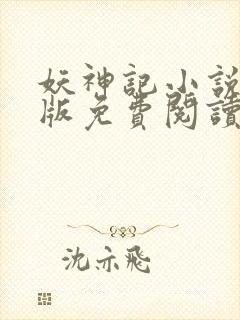 妖神記小說
版免費閱讀
沈亦飛